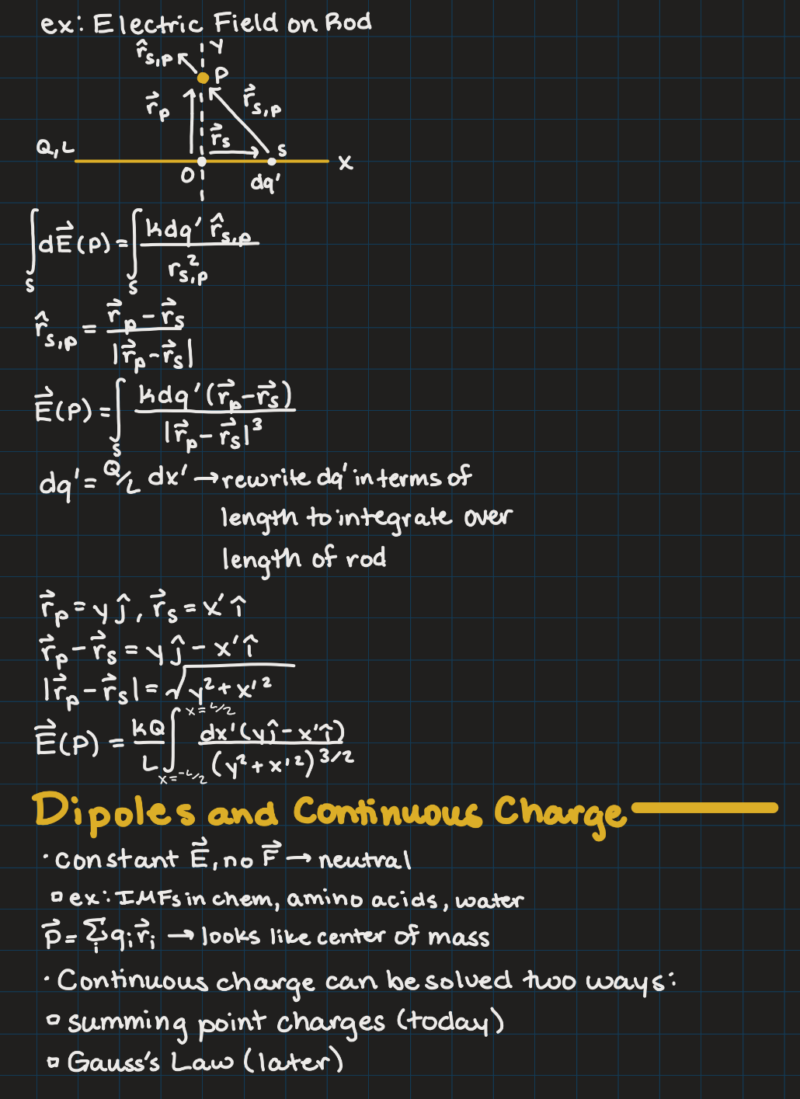 ex: Electric Field on Rod
y
r̂s,p
P
r⃗p
r⃗s,p
r⃗s
Q, L
s
x
O
dq'
∫s dE⃗(P) = ∫s kdq' r̂s,p / rs,p²
r̂s,p = (r⃗p - r⃗s) / |r⃗p - r⃗s|
E⃗(P) = ∫s kdq'(r⃗p - r⃗s) / |r⃗p - r⃗s|³
dq' = Q/L dx' → rewrite dq' in terms of
length to integrate over
length of rod
r⃗p = yĵ, r⃗s = x'î
r⃗p - r⃗s = yĵ - x'î
|r⃗p - r⃗s| = √(y² + x'²)
E⃗(P) = kQ/L ∫x=-L/2^x=L/2 dx'(yĵ - x'î) / (y² + x'²)^3/2
Dipoles and Continuous Charge
· constant E⃗, no F⃗ → neutral
▫ ex: IMFs in chem, amino acids, water
p⃗ = Σi qi r⃗i → looks like center of mass
· Continuous charge can be solved two ways:
▫ summing point charges (today)
▫ Gauss's Law (later)